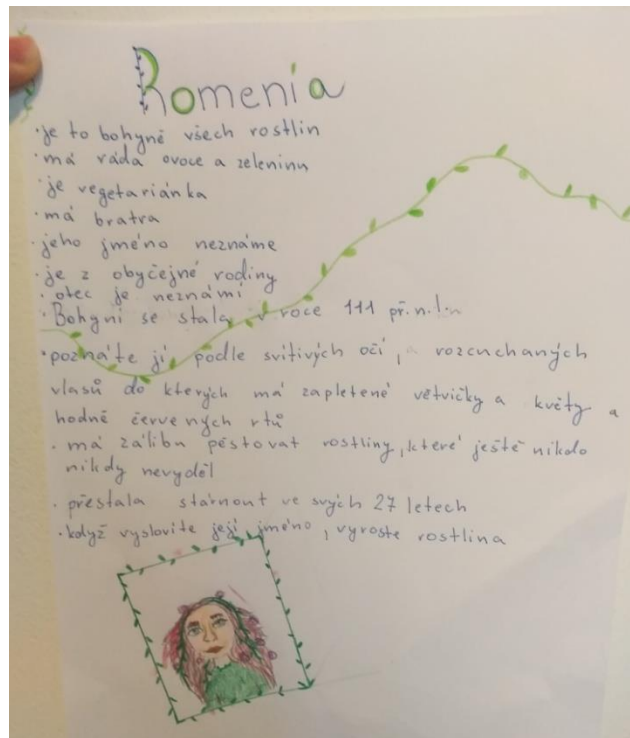 Romenia
· je to bohyně všech rostlin
· má ráda ovoce a zeleninu
· je vegetariánka
· má bratra
· jeho jméno neznáme
· je z obyčejné rodiny
· otec je neznámí
· Bohyní se stala v roce 111 př.n.l.
· poznáte jí podle svítivých očí, rozcuchaných
vlasů do kterých má zapletené větvičky a květy a
hodně červených rtů
· má zálibu pěstovat rostliny, které ještě nikdo
nikdy nevyděl
· přestala stárnout ve svých 27 letech
· když vyslovíte její jméno, vyroste rostlina